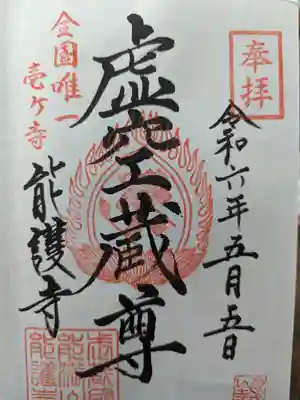 奉拝
令和六年五月五日
虚空蔵尊
全国唯一
壱ケ寺
能護寺